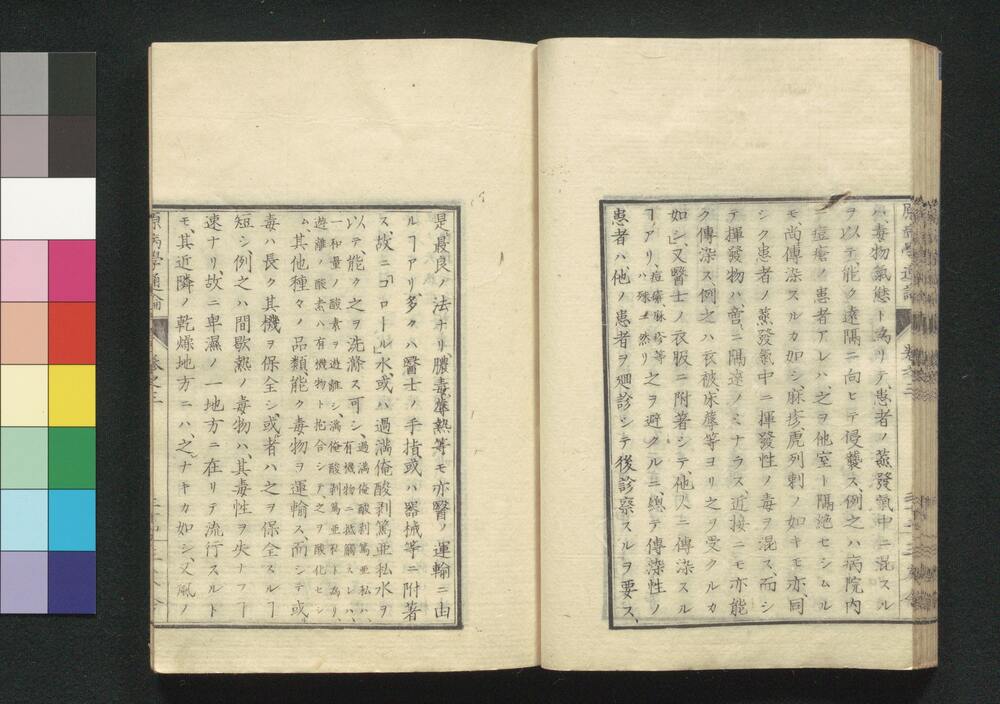 ハ、毒物氣態ト為リテ患者ノ蒸發氣中ニ混スル
ヲ以テ、能ク遠隔ニ向ヒテ侵襲ス、例之ハ病院内
ニ痘瘡ノ患者アレハ、之ヲ他室ニ隔絶セシムル
モ、尚傳染スルカ如シ、麻疹、虎列剌ノ如キモ亦、同
シク患者ノ蒸發氣中ニ揮發性ノ毒ヲ混ス、而シ
テ揮發物ハ、啻ニ隔遠ノミナラス、近接ニモ亦能
ク傳染ス例之ハ衣被、床蓐等ヨリ之ヲ受クルカ
如シ、又醫士ノ衣服ニ附著シテ、他人ニ傳染スル
ヿアリ、痘瘡、麻疹等ハ殊ニ然リ之ヲ避クルニハ、總テ傳染性ノ
患者ハ他ノ患者ヲ廻診シテ後診察スルヲ要ス、
是最良ノ法ナリ、膿毒、蓐熱等モ亦醫ノ運輸ニ由
ルヿアリ、多クハ醫士ノ手指、或ハ器械等ニ附著
ス、故ニ「コロール」水、或ハ過満俺酸剥篤亜私水ヲ
以テ、能ク之ヲ洗滌ス可シ、過満俺酸剥篤亜私ハ、有機物ニ抵觸スレハ、
一和量ノ酸素ヲ遊離シ、満俺酸剥篤亜私ト為リ、
遊離ノ酸素ハ有機物ト抱合シテ、之ヲ酸化セシ
ム、其他種々ノ品類、能ク毒物ヲ運輸ス、而シテ或
毒ハ長ク其機ヲ保全シ、或者ハ之ヲ保全スルヿ
短シ例之ハ間歇熱ノ毒物ハ、其毒性ヲ失ナフヿ
速ナリ、故ニ卑濕ノ一地方ニ在リテ流行スルト
モ、其近隣ノ乾燥地方ニハ、之ナキカ如シ、又風ノ
原病學通論
巻之三